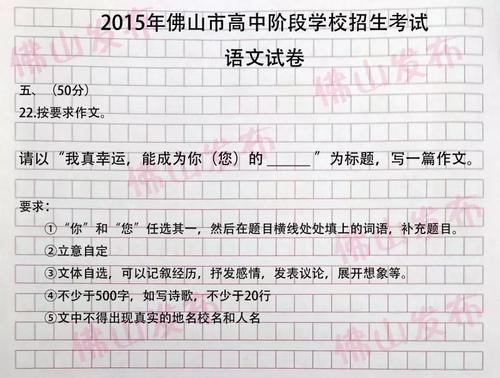 2015年佛山市高中阶段学校招生考试
语文试卷
五、（50分）
22.按要求作文。
请以“我真幸运，能成为你（您）的______”为标题，写一篇作文。
要求：
①“你”和“您”任选其一，然后在题目横线处处填上的词语，补充题目。
②立意自定
③文体自选，可以记叙经历，抒发感情，发表议论，展开想象等。
④不少于500字，如写诗歌，不少于20行
⑤文中不得出现真实的地名校名和人名
佛山发布
佛山发布
佛山发布
佛山发布
佛山发布